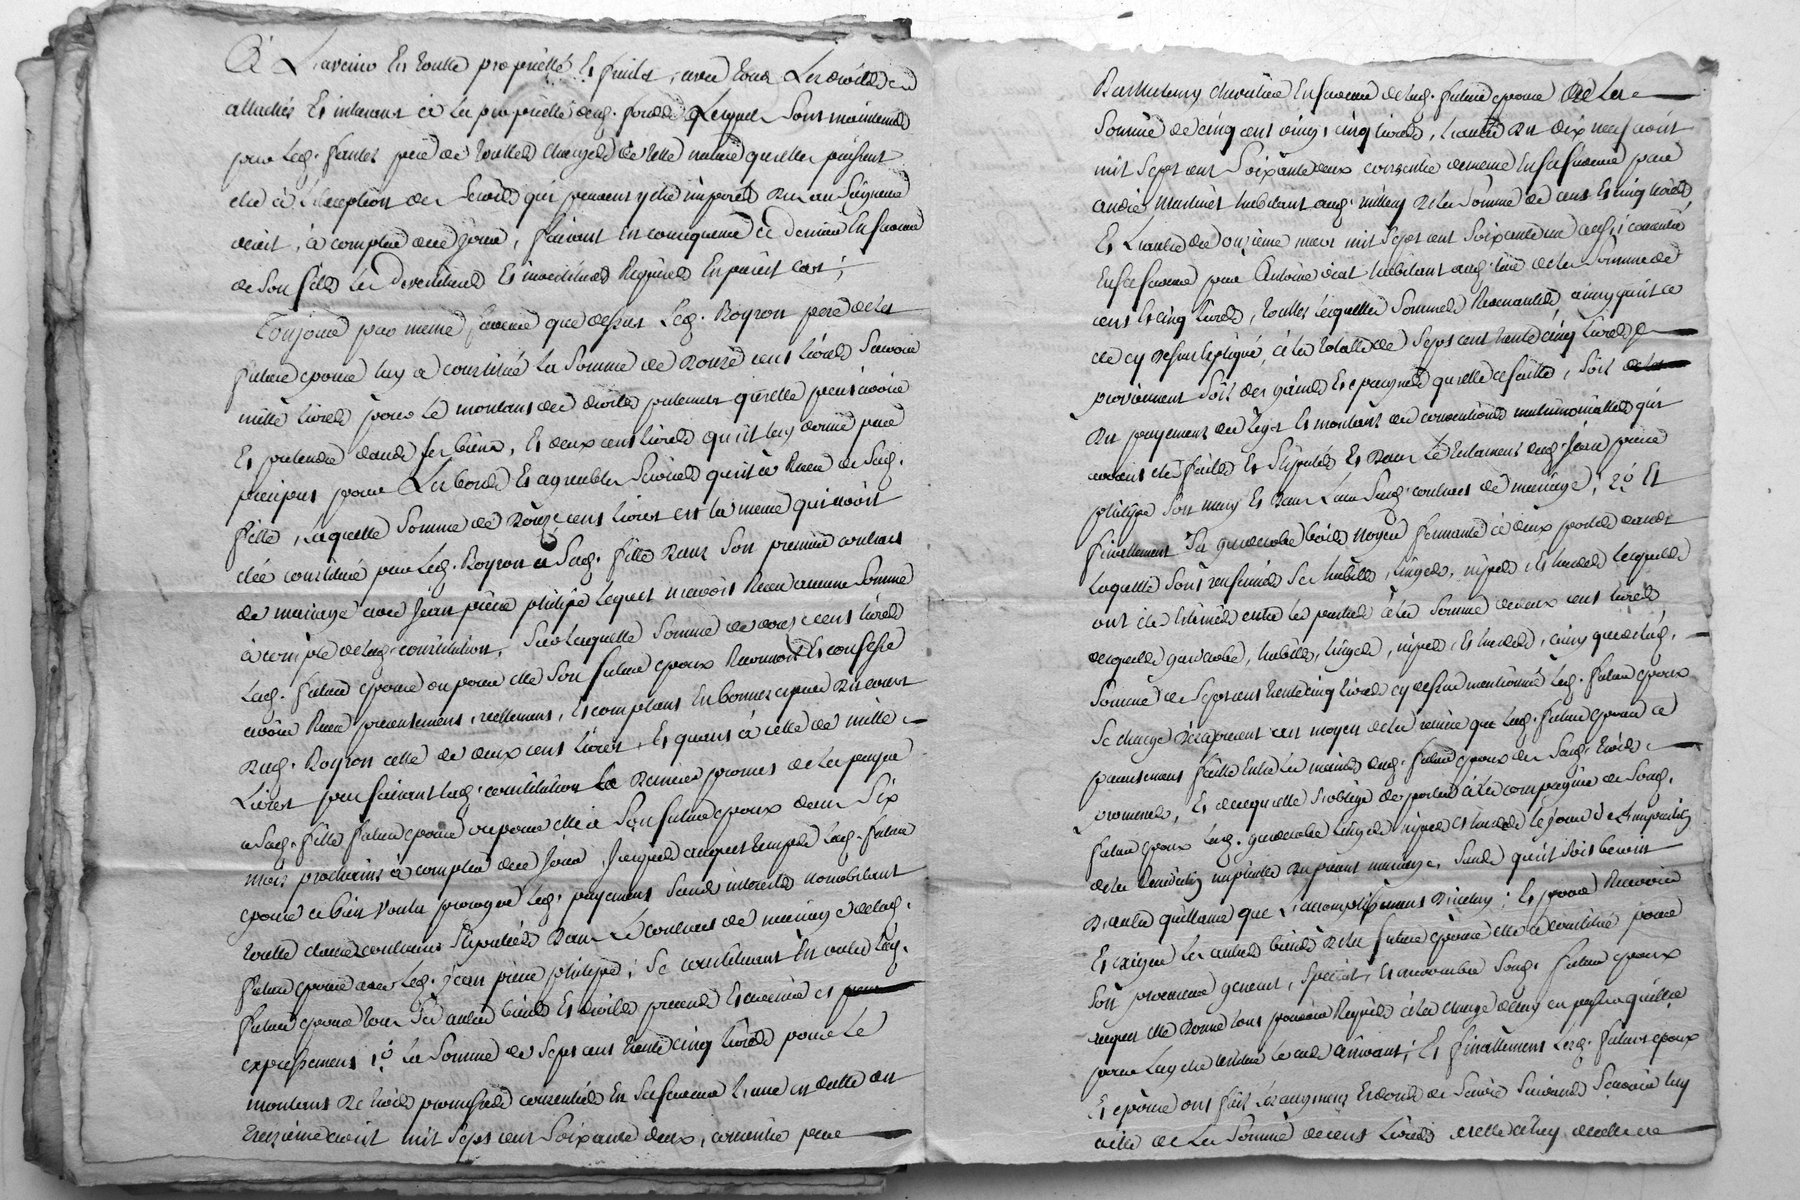 À L'avenir En toutte proprietté Et fruits, avec tous Les droits
attachés Et inherans à La proprietté desd. fonds Lesquels sont maintenus
par Led. pere de touttes charges de telle nature qu'elles puissent
etre à L'exception des qui peuvent y etre imposés au Seigneur
direct, à compter de ce jour, faisant En consequence ce dernier En faveur
de son fils Les Devestitures Et investitures Requises En pareil cas;
Toujour par meme faveur que dessus Led. Royron pere de la
future epouse luy a constitué La Somme de Douze cens Livres Savoir
mille Livres pour Le montant des droits paternels qu'elle peut avoir
Et pretendre dans ses biens, Et deux cens Livres qu'il luy donne par
preciput pour Les bons Et agreables Services qu'il a Receu de Sad.
fille, Laquelle Somme de Douze cens Livres est la meme qui avoit
été constitué par Led. Royron à Sad. fille Dans Son premier contrat
de mariage avec Jean pierre philipe Lequel n'avoit Receu aucune Somme
à compte de lad. constitution, Sur Laquelle Somme de douze cens Livres
Lad. future epouse ou pour elle Son futur epoux Reconnoit Et confesse
avoir Receu presentement, reellement, Et comptant En bonnes especes De cours
Dud. Royron celle de deux cens Livres, Et quant à celle de mille
Livres pour faisant lad. constitution Le Dernier promet de La payer
a Sad. fille future epouse ou pour elle à Son futur epoux dans Six
mois prochains à compter de ce jour, jusques auquel temps Lad. future
epouse a bien voulu proroger Led. payement Sans interets nonobstant
toutte clause contraire Stipulée Dans Le contrat de mariage de lad.
future epouse avec Led. Jean pierre philippe; Se constituant En outre Lad.
future epouse tous Ses autres biens Et droits presens Et avenir Et
expressement 1.º La Somme de Sept cens trente cinq Livres pour Le
montant De trois promesses consenties En Sa faveur L'une En datte du
treizieme aoust mil Sept cent Soixante deux, consentie par
Barthelemy chevalier En faveur de lad. future epouse De La
Somme de cinq cent vingt cinq Livres, L'autre Du dix neuf aoust
mil Sept cent Soixante deux consentie de meme En sa faveur par
andré Martinet habitant aud. De la Somme de cent Et cinq Livres
Et L'autre du onzieme mars mil Sept cent Soixante un aussi consentie
En sa faveur par Antoine habitant aud. lieu de la Somme de
cent Et cinq Livres, touttes Lesquelles Sommes Revenantes ainsy qu'il a
été cy Dessus Expliqué, à La totalle de Sept cent trente cinq Livres
proviennent Soit des gains Et epargnes qu'elle a faitte, Soit
Du payement des Legs Et montant des conventions matrimonialles qui
avoient été faittes Et Stipulés Et Dans Le testament dud. Jean pierre
philipe Son mary Et Dans Leur Susd. contrat de mariage; 2.º Et
finallement Sa garderobe bois Noyer fermante à deux portes dans
Laquelle sont renfermés Ses habits, linges, nipes, Et hardes Lesquelles
ont été Estimés entre Les parties à La Somme de deux cens Livres,
desquelles garderobe, habits, linges, nipes, Et hardes, ainsy que de lad.
Somme de Sept cens trente cinq Livres cy dessus mentionné Led. futur epoux
Se charge Des apresent au moyen de la remise que Lad. future epouse a
presentement faitte Entre Les mains dud. futur epoux des Susd. trois
promesses, Et de laquelle s'oblige de porter à La compagnie de Sond.
futur epoux Lad. garderobe Linges nipes Et hardes Le jour de L'impartition
de la Benediction nuptialle Du present mariage, Sans qu'il Soit besoin
D'autre quittance que L'accomplissement D'iceluy; Et pour Recevoir
Et exiger Les autres biens De la future epouse elle a constitué pour
Son procureur general, Special, Et irrevocable Sond. futur epoux
auquel elle Donne tous pouvoirs Requis à La charge d'en passer quittance
pour Luy etre rendue Le cas arrivant; Et finallement Lesd. futurs epoux
Et epouse ont fait Les augment Et dons de Survie Suivants Savoir luy
celle de La Somme de cens Livres Et elle a luy de celle de